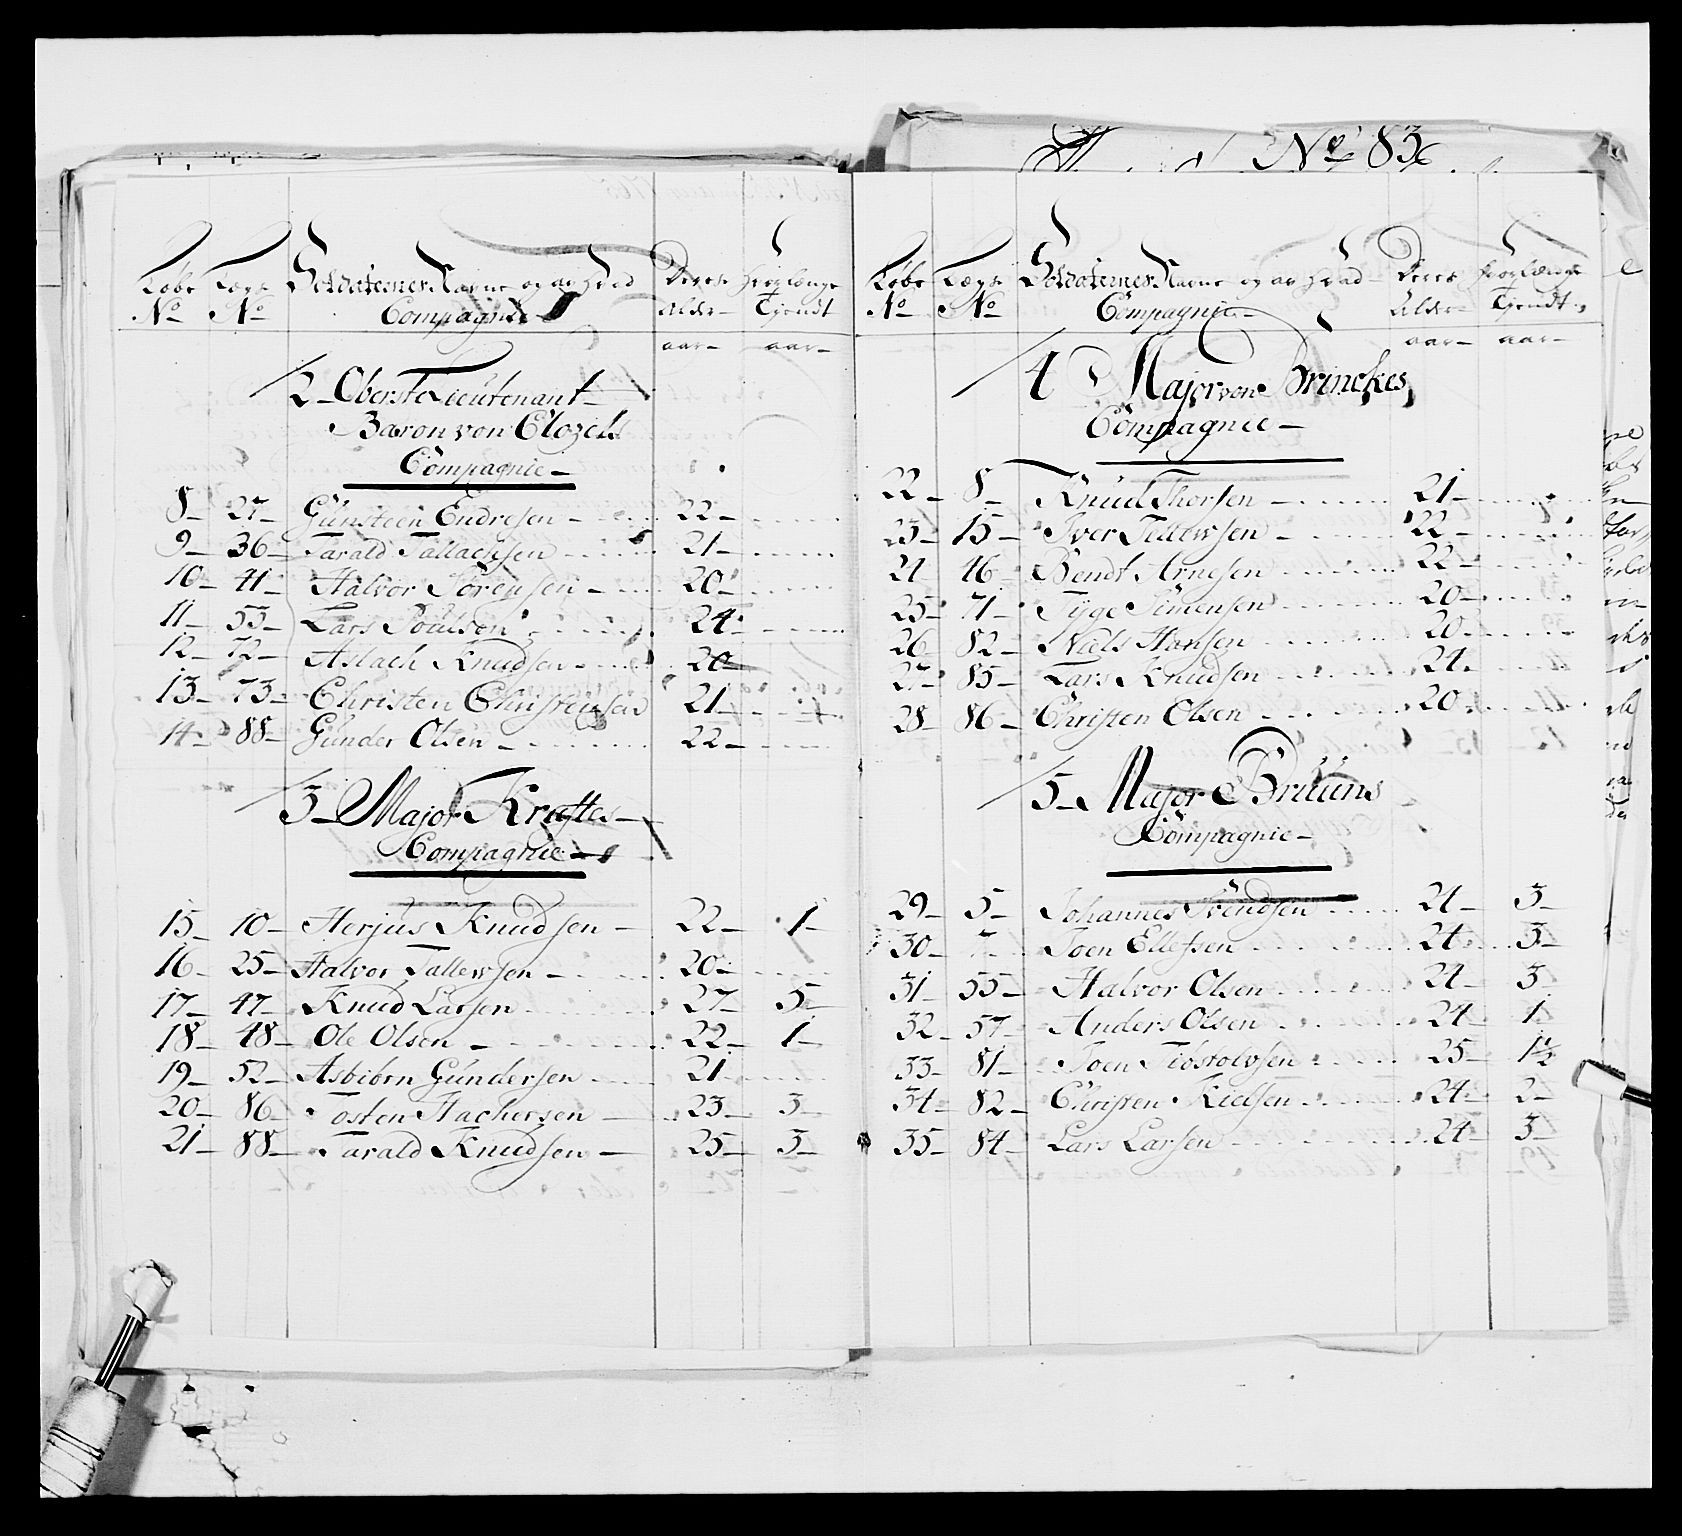 No 83
Løbe No Lægs No Soldaternes Navne og av hvad Compagnie Deres Alder Hvorlænge Tjendt
aar aar
2 Oberst Lieutenant
Baron von Clozels
Compagnie
8 27 Gunsteen Endresen 22
9 36 Tarald Tallachsen 21
10 41 Halvor Sørensen 20
11 53 Lars Poulsen 24
12 72 Aslach Knudsen 20
13 73 Christen Christensen 21
14 88 Gunder Olsen 22
3 Major Krafts
Compagnie
15 10 Herjus Knudsen 22 1
16 25 Halvor Tallewsen 20
17 47 Knud Larsen 27 5
18 48 Ole Olsen 22 1
19 52 Asbiörn Gundersen 21
20 86 Tosten Hachersen 23 3
21 88 Tarald Knudsen 25 3
Løbe No Lægs No Soldaternes Navne og av hvad Compagnie Deres Alder Hvorlænge Tjendt
aar aar
4 Major von Brinckes
Compagnie
22 8 Knud Thorsen 21
23 15 Iver Tellewsen 22
24 46 Bendt Arnesen 22
25 71 Tyge Simensen 20
26 82 Niels Hansen 20
27 85 Lars Knudsen 24
28 86 Christen Olsen 20
5 Major Bruuns
Compagnie
29 5 Johannes Svendsen 24 3
30 7 Joen Ellefsen 24 3
31 55 Halvor Olsen 24 3
32 57 Anders Olsen 24 1
33 81 Joen Tiøstolvsen 25 1½
34 82 Christen Nielsen 24 2
35 84 Lars Larsen 24 3